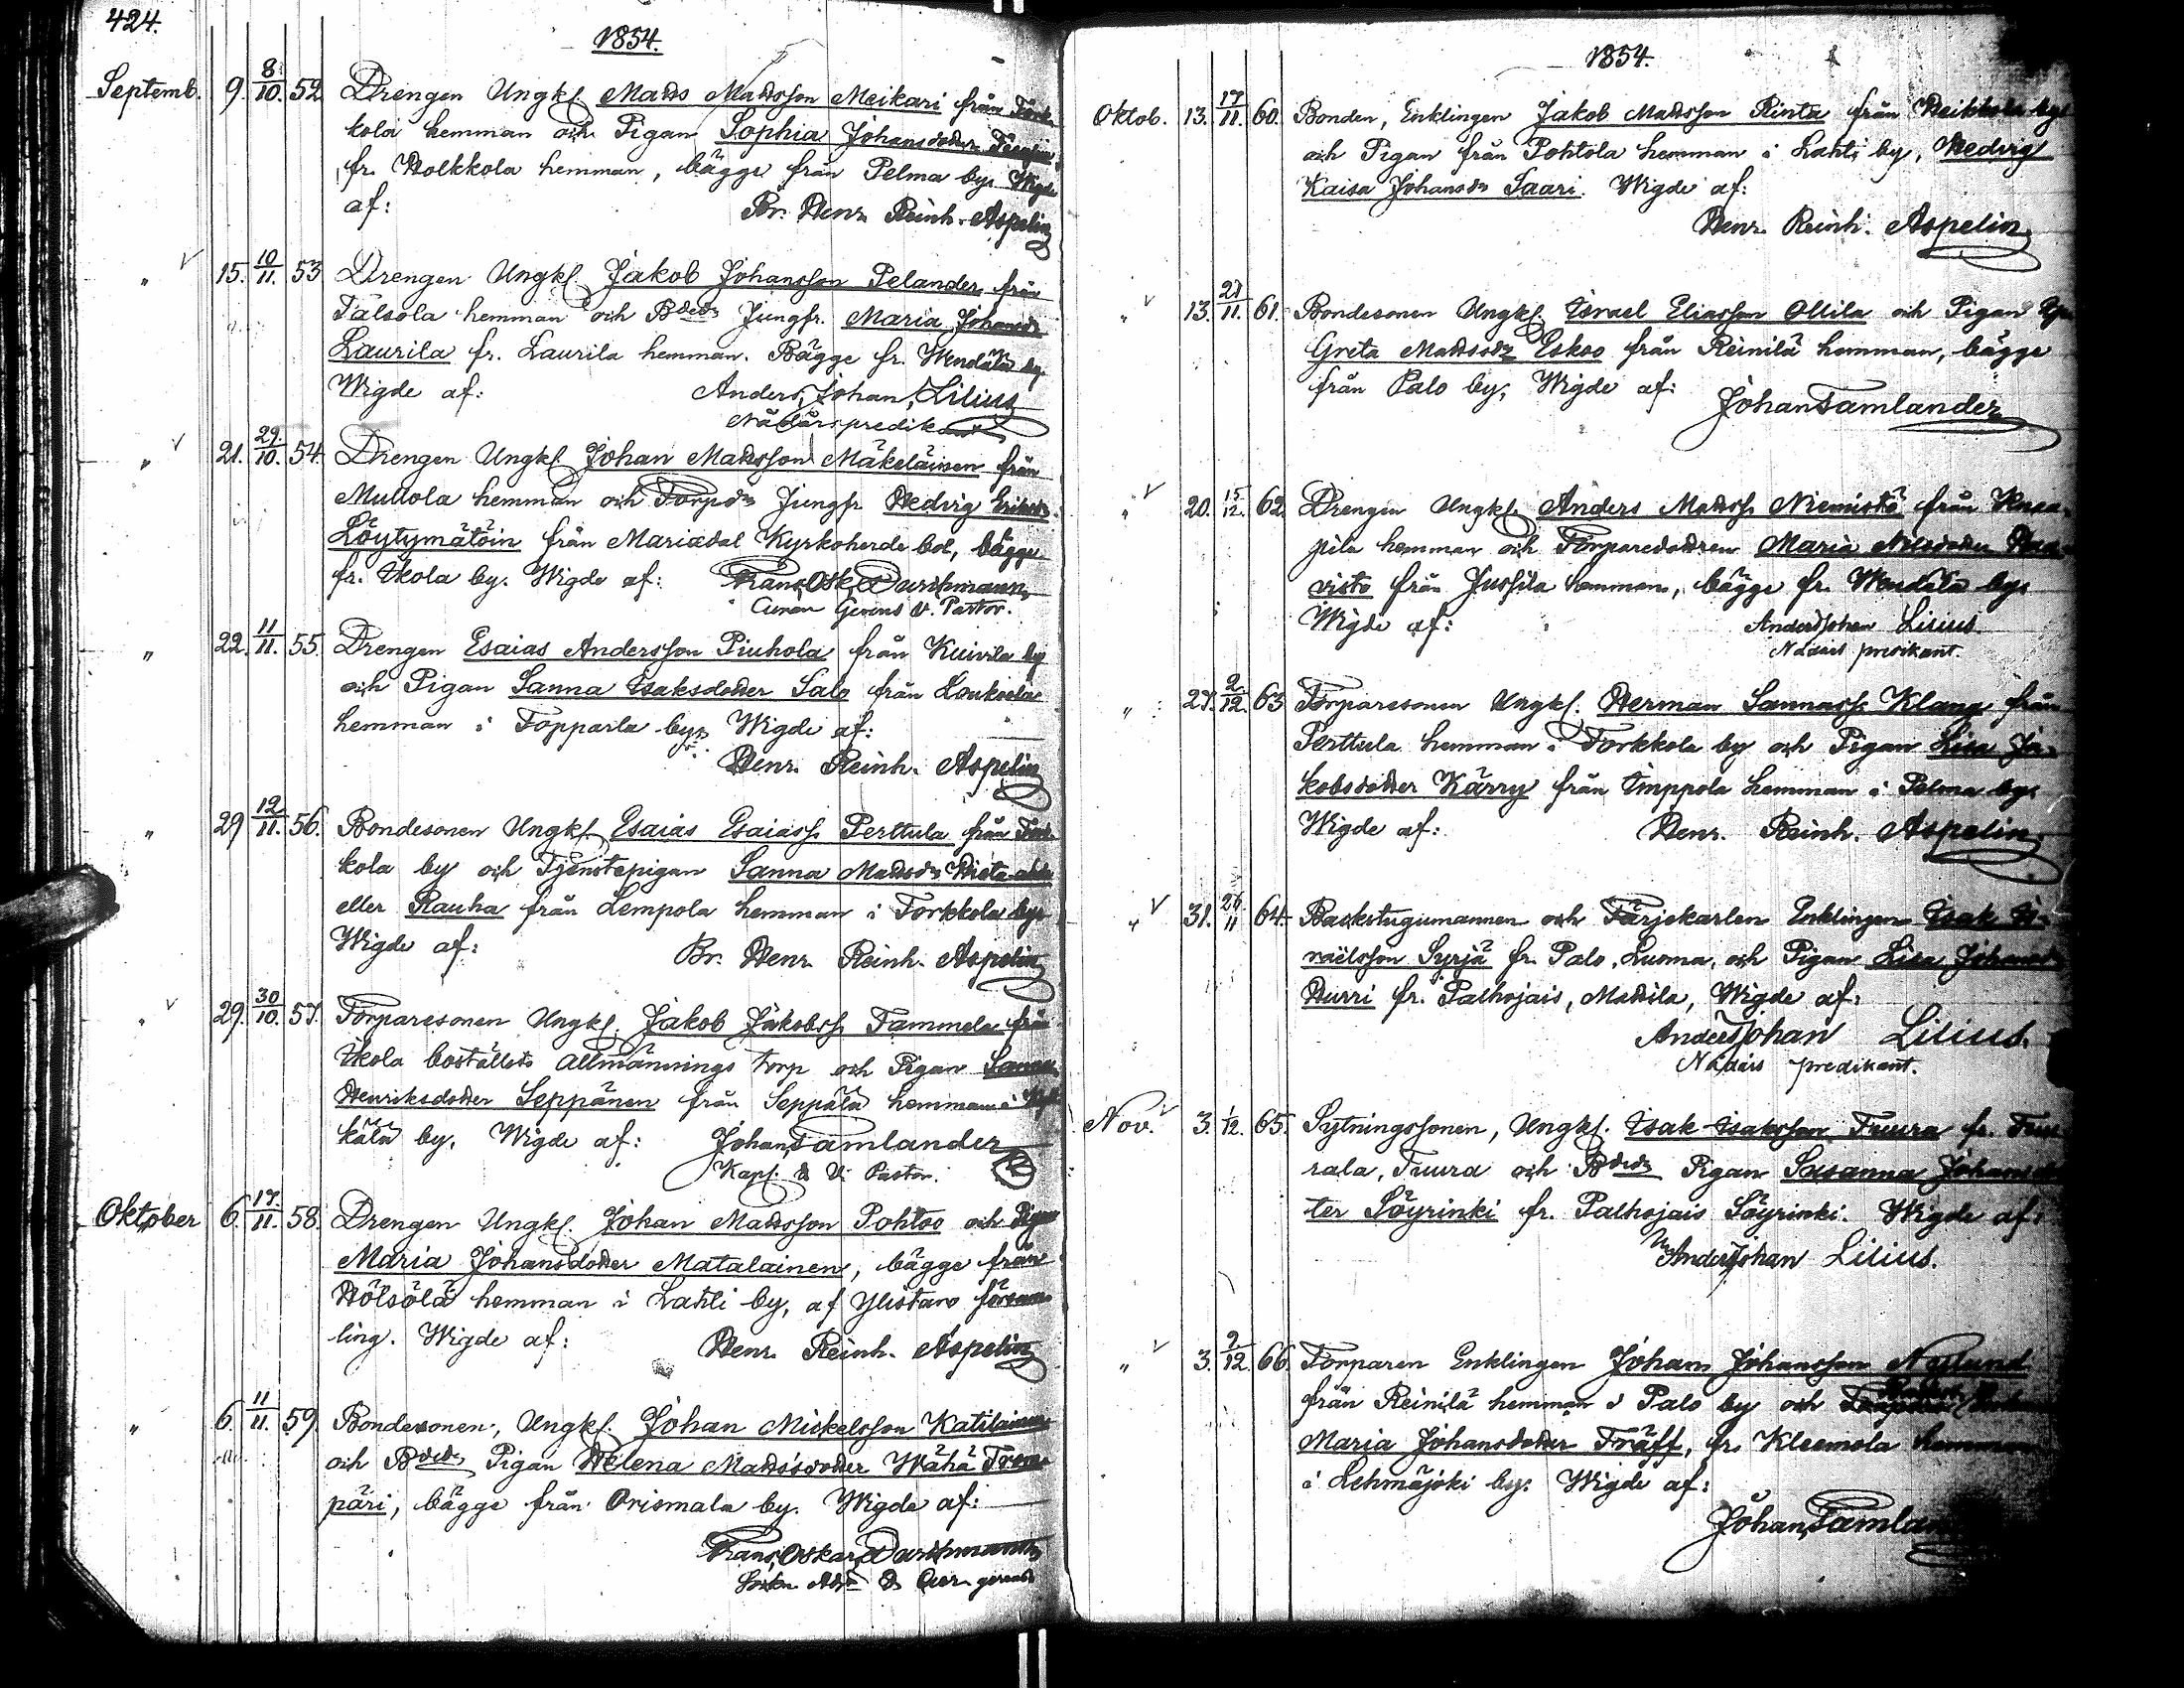 424.
1854.
Septemb. 9. 8/10. 52 Drengen Ungkl. Matts Mattsson Meikari från Tork-
kola hemman och Pigan Sophia Johansdotter
fr. Wolkkola hemman, bägge från Pelma by. Wigde
af: Br. Henr. Reinh. Aspelin
" 15. 10/11. 53 Drengen Ungkl. Jakob Johansson Pelander från
Talsola hemman och Bdedr Jungfr. Maria Johansdr
Laurila fr. Laurila hemman. Bägge fr. Wendälä by.
Wigde af: Anders Johan Lilius
Nådårspredikant
" 21. 29/10. 54. Drengen Ungkl. Johan Mattsson Mäkeläinen från
Mullola hemman och Torpdr Jungfr Hedvig Eriksdr
Löytymätöin från Mariædal Kyrkoherde bol, bägge
fr. Ikola by. Wigde af: Frans Osk. Durchman
Curam Gerens V. Pastor.
" 22. 11/11. 55. Drengen Esaias Andersson Piuhola från Kuivila by
och Pigan Sanna Isaksdotter Salo från Loukoela
hemman i Topparla by. Wigde af:
Henr. Reinh. Aspelin
" 29 12/11. 56. Bondesonen Ungkl. Esaias Esaiass. Perttula från Tork-
kola by och Tjenstepigan Sanna Mattsdr Hieta-aho
eller Rauha från Lempola hemman i Torkkola by.
Wigde af: Br. Henr. Reinh. Aspelin
" 29. 30/10. 57. Torparesonen Ungkl. Jakob Jakobss. Tammela från
Ikola boställets Allmännings torp och Pigan Sanna
Henriksdotter Seppänen från Seppälä hemman i
kälä by. Wigde af: Johan Tamlander
Kapl. & V. Pastor.
Oktober 6. 17/11. 58. Drengen Ungkl. Johan Mattsson Pohtoo och Pigan
Maria Johansdotter Matalainen, bägge från
Hölsölä hemman i Lahti by, af Ylistaro försam-
ling. Wigde af: Henr. Reinh. Aspelin
" 6. 11/11. 59. Bondesonen, Ungkl. Johan Mickelsson Katilainen
och Bdedr Pigan Helena Mattsdotter Wähä Trem-
päri, bägge från Orismala by. Wigde af:
Frans Oskar Durchman
1854.
Oktob. 13. 17/11. 60. Bonden, Enklingen Jakob Mattsson Rinta från Heikkola by
och Pigan från Pohtola hemman i Lahti by, Hedvig
Kaisa Johansdr Saari. Wigde af:
Henr. Reinh. Aspelin
" 13. 21/11. 61. Bondesonen Ungkl. Israel Eliasson Ollila och Pigan
Greta Mattsdr Eskoo från Reinilä hemman, bägge
från Palo by, Wigde af: Johan Tamlander
" 20. 15/12. 62. Drengen Ungkl. Anders Mattss. Niemistö från
pila hemman och Torparedottren Maria Nilsdotter
visto från Jussila hemman, bägge fr. Wendälä by.
Wigde af: Anders Johan Lilius
Nådårs predikant.
" 27. 2/12. 63 Torparesonen Ungkl. Herman Sannass. Klang från
Perttula hemman i Torkkola by och Pigan Lisa Ja-
kobsdotter Kärry från Imppola hemman i Pelma by.
Wigde af: Henr. Reinh. Aspelin
" 31. 26/11 64. Backstugumannen och Färjekarlen Enklingen Isak Is-
raëlsson Syrjä fr. Palo, Luoma, och Pigan Lisa Johansdr
Hurri fr. Palhojais, Mattila, Wigde af:
Anders Johan Lilius.
Nådårs predikant.
Nov. 3. 1/12. 65. Sytningssonen, Ungkl. Isak Isaksson Tuura fr. Tuu-
rala, Tuura och Bdedr Pigan Susanna Johansdot-
ter Söyrinki fr. Palhojais Söyrinki. Wigde af:
Anders Johan Lilius.
" 3. 2/12. 66. Torparen Enklingen Johan Johansson Nylund
från Reinilä hemman i Palo by och
Maria Johansdotter Träff, fr. Kleemola hemman
i Lehmäjoki by. Wigde af:
Johan Tamlander